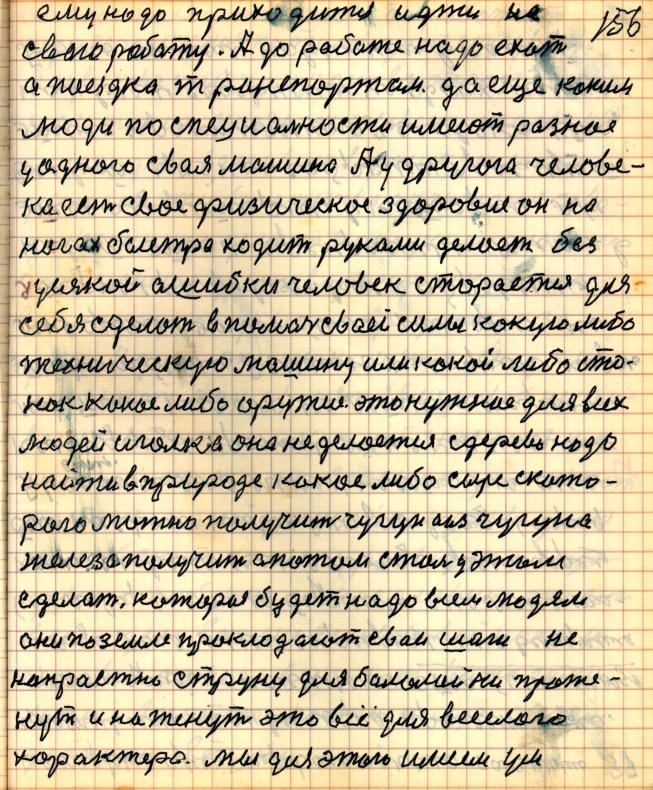 156
ему надо приходится идти на
сваго работу. А до работе надо ехат
а поездка транспортам. да еще каким
люди по специалности имеют разное
у одного свая машина А у другога челове-
ка ест свое физическое здоровие он на
ногах быстра ходит руками делает без
усякой ашибки человек старается для
себя сделат в помач сваей силы какую либо
техническую машину или какой либо ста-
нок какое либо аружие. это нужное для всех
людей иголка она не делается с дерева надо
найти в природе какое либо сыре с като-
рого можно получит чугун а из чугуна
железа получит а потом стал у этом
сделат. каторае будет надо всем людям
они по земле прокладают сваи шаги не
напрастно струну для балалайки протя-
нут и натенут это всё для веселого
характера. мы для этого имеем ум